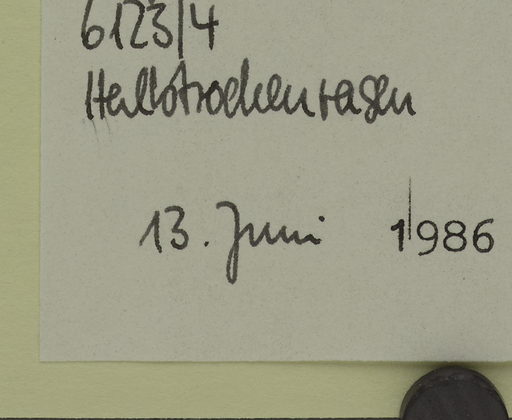 6123/4
Halbtrockenrasen
13. Juni 1986